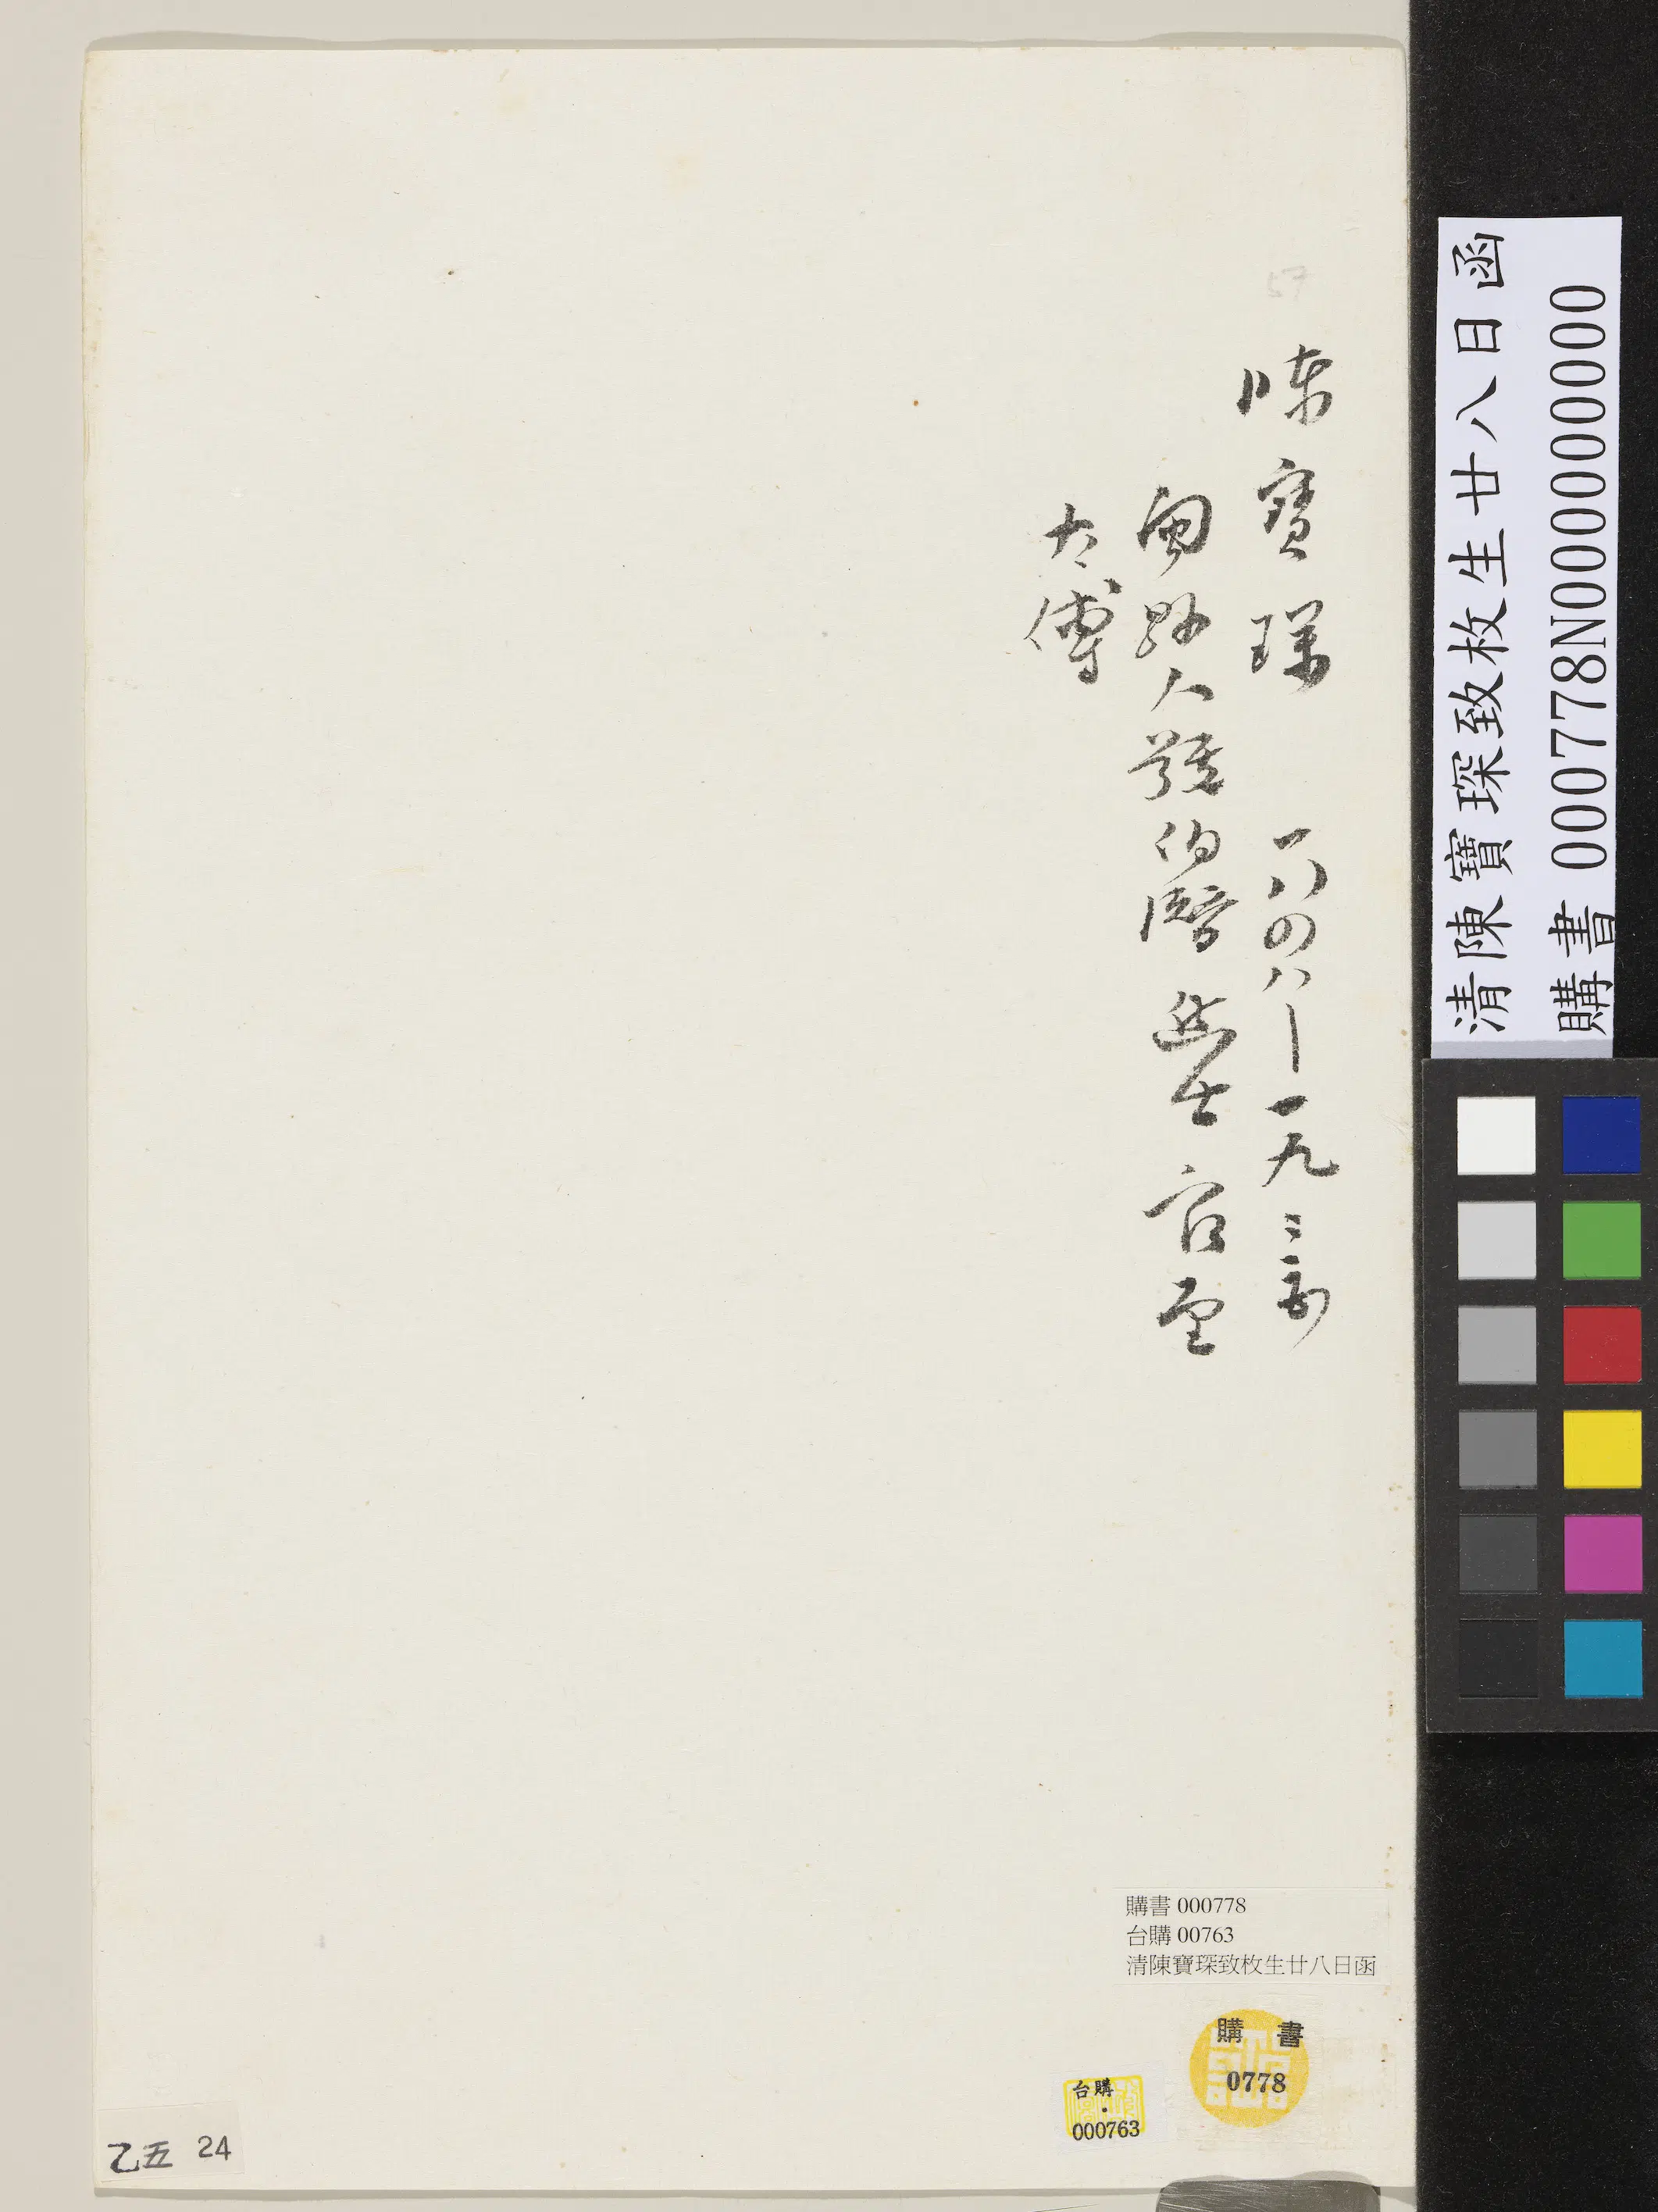 57
陳寶琛 一八四八—一九三五
閩縣人號伯潛進士官至
太傅
購書 000778
台購 00763
清陳寶琛致枚生廿八日函
購 書
0778
台購
000763
乙五 24
清陳寶琛致枚生廿八日函
購書 000778N000000000